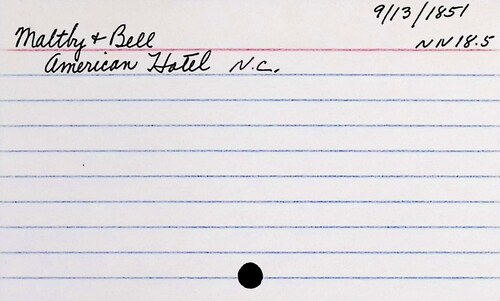 9/13/1851
Maltby + Bell NN 18.5
American Hotel N.C.